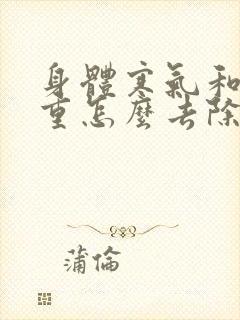 身體寒氣和
重怎麼去除
蒲倫